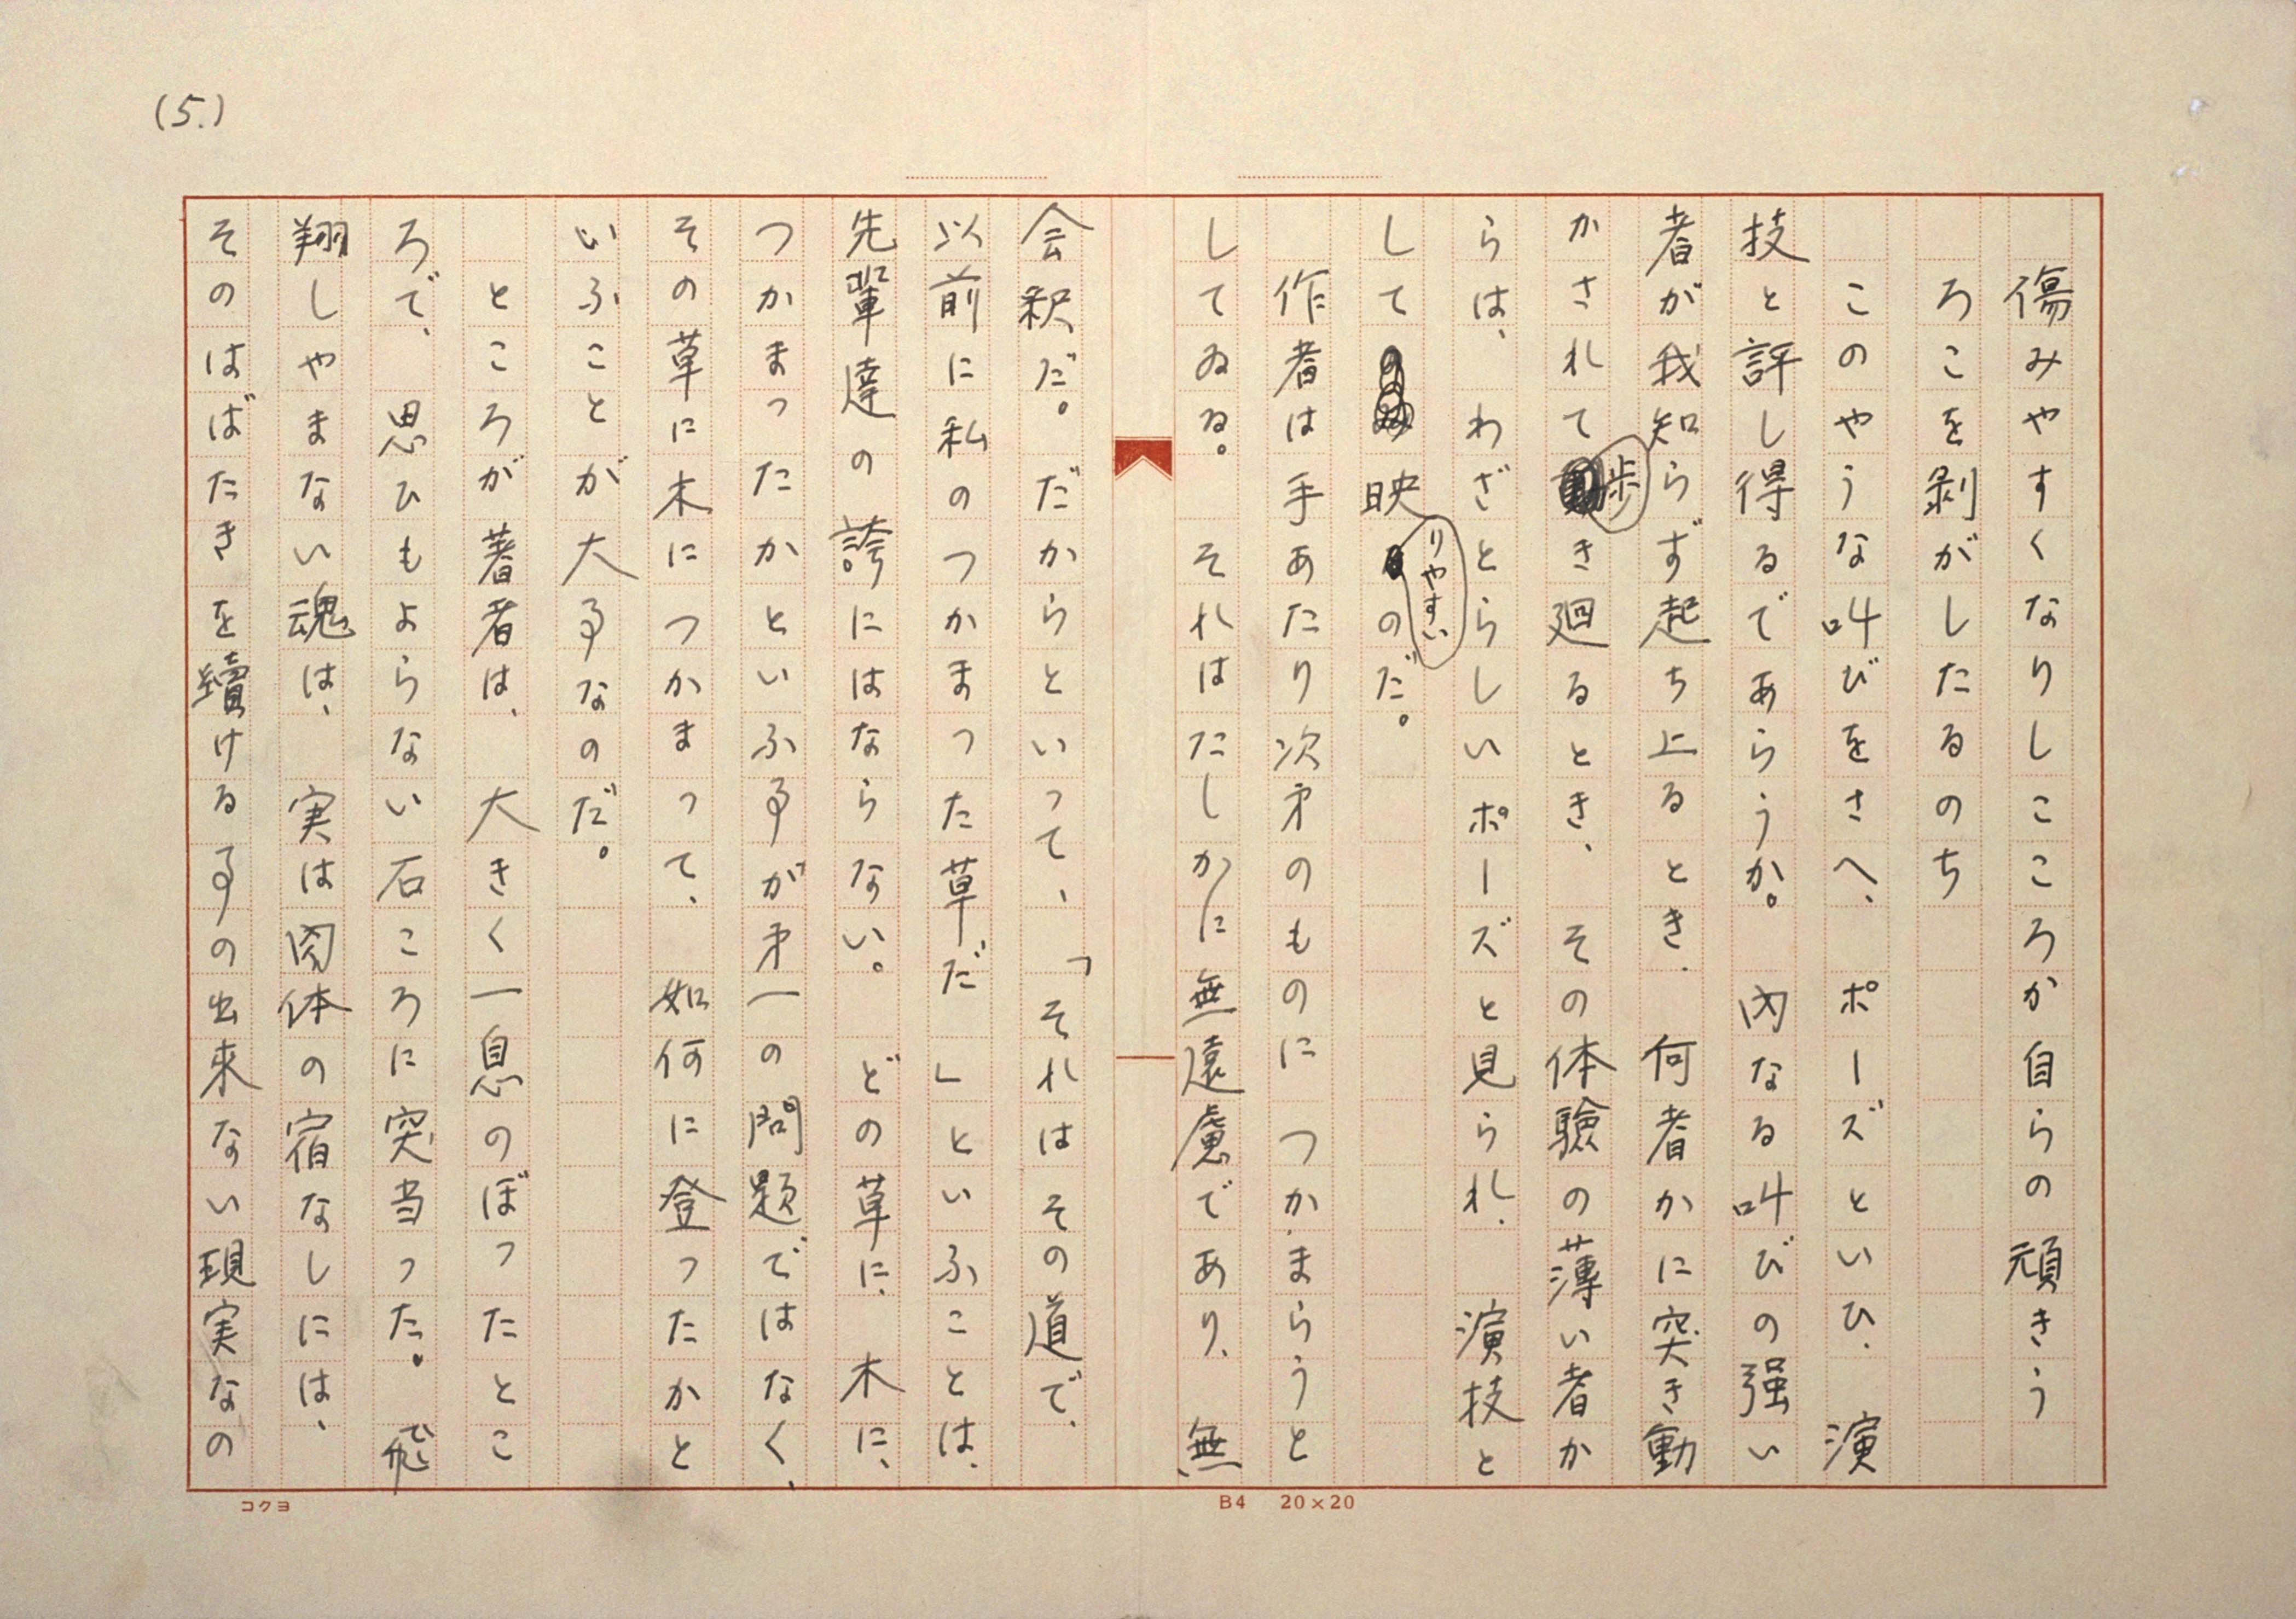 (5.)
傷みやすくなりしこころか自らの頑きう
ろこを剥がしたるのち
このやうな叫びをさへ、ポーズといひ、演
技と評し得るであらうか。内なる叫びの強い
者が我知らず起ち上るとき、何者かに突き動
かされて歩き廻るとき、その体験の薄い者か
らは、わざとらしいポーズと見られ、演技と
して映りやすいのだ。
作者は手あたり次㐧のものにつかまらうと
してゐる。それはたしかに無遠慮であり、無
会釈だ。だからといって、「それはその道で、
以前に私のつかまった草だ」といふことは、
先輩達の誇にはならない。どの草に、木に、
つかまったかといふ事が㐧一の問題ではなく、
その草に木につかまって、如何に登ったかと
いふことが大事なのだ。
ところが著者は、大きく一息のぼったとこ
ろで、思ひもよらない石ころに突当った。飛
翔しやまない魂は、実は肉体の宿なしには、
そのはばたきを續ける事の出来ない現実なの
コクヨ
B4 20×20